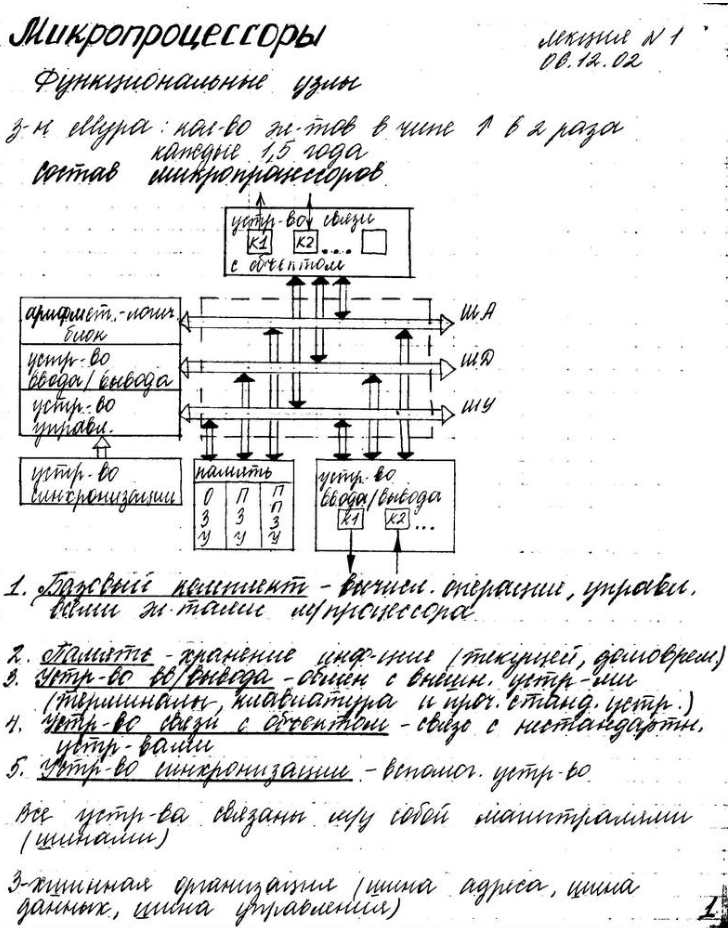 Микропроцессоры
лекция N 1
06.12.02
Функциональные узлы
З-н Мура: кол-во эл-тов в чипе ↑ в 2 раза
каждые 1,5 года
Состав микропроцессоров
устр-во связи
К1 К2 ....
с объектом
арифмет.-логич.
блок
устр-во
ввода/вывода
устр-во
управл.
устр-во
синхронизации
ША
ШД
ШУ
память
О П П
З З П
У У З
У
устр-во
ввода/вывода
К1 К2 ...
1. Базовый комплект - вычисл. операции, управл.
всеми эл-тами м/процессора
2. Память - хранение инф-ции (текущей, долговрем)
3. Устр-во вв/вывода - обмен с внешн. устр-ми
(терминалы, клавиатура и проч. станд. устр.)
4. Устр-во связи с объектом - связь с нестандартн.
устр-вами
5. Устр-во синхронизации - вспомог. устр-во
Все устр-ва связаны м/у собой магистралями
(шинами)
3-хшинная организация (шина адреса, шина
данных, шина управления)
1